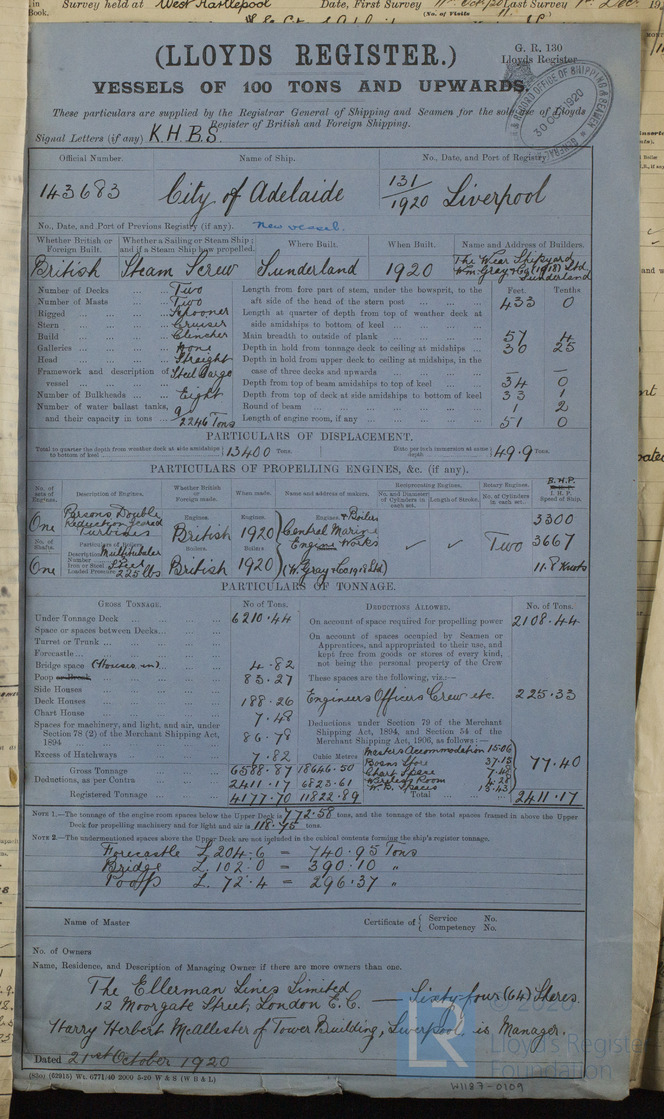 Survey held at West Hartlepool Date, First Survey
(No. of Visits
(LLOYDS REGISTER.)
G. R. 130
Lloyds Register
VESSELS OF 100 TONS AND UPWARDS.
These particulars are supplied by the Registrar General of Shipping and Seamen for the sole use of Lloyds
Register of British and Foreign Shipping.
Signal Letters (if any) K.H.B.S.
30 OCT 1920
Official Number. Name of Ship. No., Date, and Port of Registry
143683 City of Adelaide 131/1920 Liverpool
No., Date, and Port of Previous Registry (if any). New vessel.
Whether British or Foreign Built. Whether a Sailing or Steam Ship; and if a Steam Ship how propelled. Where Built. When Built. Name and Address of Builders.
British Steam Screw Sunderland 1920 The Wear Shipyard Wm Gray & Co (1918) Ltd Sunderland
Number of Decks Two
Number of Masts Two
Rigged Schooner
Stern Cruiser
Build Clencher
Galleries None
Head Straight
Framework and description of vessel Steel Cargo
Number of Bulkheads Eight
Number of water ballast tanks, and their capacity in tons 9 2246 Tons
Feet. Tenths
Length from fore part of stem, under the bowsprit, to the aft side of the head of the stern post 433 0
Length at quarter of depth from top of weather deck at side amidships to bottom of keel
Main breadth to outside of plank 57 4
Depth in hold from tonnage deck to ceiling at midships 30 25
Depth in hold from upper deck to ceiling at midships, in the case of three decks and upwards — —
Depth from top of beam amidships to top of keel 34 0
Depth from top of deck at side amidships to bottom of keel 33 1
Round of beam 1 2
Length of engine room, if any 51 0
PARTICULARS OF DISPLACEMENT.
Total to quarter the depth from weather deck at side amidships to bottom of keel 13400 Tons. Ditto per inch immersion at same depth 49.9 Tons.
PARTICULARS OF PROPELLING ENGINES, &c. (if any).
No. of sets of Engines. Description of Engines. Whether British or Foreign made. When made. Name and address of makers. Reciprocating Engines. No. and Diameter of Cylinders in each set. Length of Stroke. Rotary Engines. No. of Cylinders in each set. B.H.P. I.H.P. Speed of Ship.
One Parsons Double Reduction Geared Turbines Engines. British Engines. 1920 Engines & Boilers Central Marine Engine Works ✓ ✓ Two 3300
3667
No. of Shafts. Particulars of Boilers. Boilers. Boilers
One Description Multitubular Number Iron or Steel Steel Loaded Pressure 225 lbs British 1920 (W. Gray & Co 1918 Ltd) 11.8 Knots
PARTICULARS OF TONNAGE.
GROSS TONNAGE. No. of Tons. DEDUCTIONS ALLOWED. No. of Tons.
Under Tonnage Deck 6210.44
Space or spaces between Decks
Turret or Trunk
Forecastle
Bridge space (Houses in) 4.82
Poop or Break 83.27
Side Houses
Deck Houses 188.26
Chart House 7.48
Spaces for machinery, and light, and air, under Section 78 (2) of the Merchant Shipping Act, 1894 86.78
Excess of Hatchways 7.82
Cubic Metres
Gross Tonnage 6588.87 18646.50
Deductions, as per Contra 2411.17 6823.61
Registered Tonnage 4177.70 11822.89
On account of space required for propelling power 2108.44
On account of spaces occupied by Seamen or Apprentices, and appropriated to their use, and kept free from goods or stores of every kind, not being the personal property of the Crew
These spaces are the following, viz.:—
Engineers Officers Crew etc. 225.33
Deductions under Section 79 of the Merchant Shipping Act, 1894, and Section 54 of the Merchant Shipping Act, 1906, as follows:—
Masters Accommodation 15.06
Bosns Store 37.15
Chart Space 7.48
Wireless Room 4.28
W.B. Spaces 13.43
77.40
Total 2411.17
NOTE 1.—The tonnage of the engine room spaces below the Upper Deck is 772.58 tons, and the tonnage of the total spaces framed in above the Upper
Deck for propelling machinery and for light and air is 118.75 tons.
NOTE 2.—The undermentioned spaces above the Upper Deck are not included in the cubical contents forming the ship's register tonnage.
Forecastle L. 204.6 = 740.95 Tons
Bridge L. 102.0 = 390.10 "
Poop L. 72.4 = 296.37 "
Name of Master Certificate of { Service No. Competency No.
No. of Owners
Name, Residence, and Description of Managing Owner if there are more owners than one.
The Ellerman Lines Limited
12 Moorgate Street, London E.C. — Sixty-four (64) Shares.
Harry Herbert McAllester of Tower Building, Liverpool, is Manager.
Dated 21st October 1920
(830) (62915) Wt. 6771/40 2000 5-20 W & S (W B & L)
LR
© 2020
Lloyd's Register
Foundation
W1187-0109